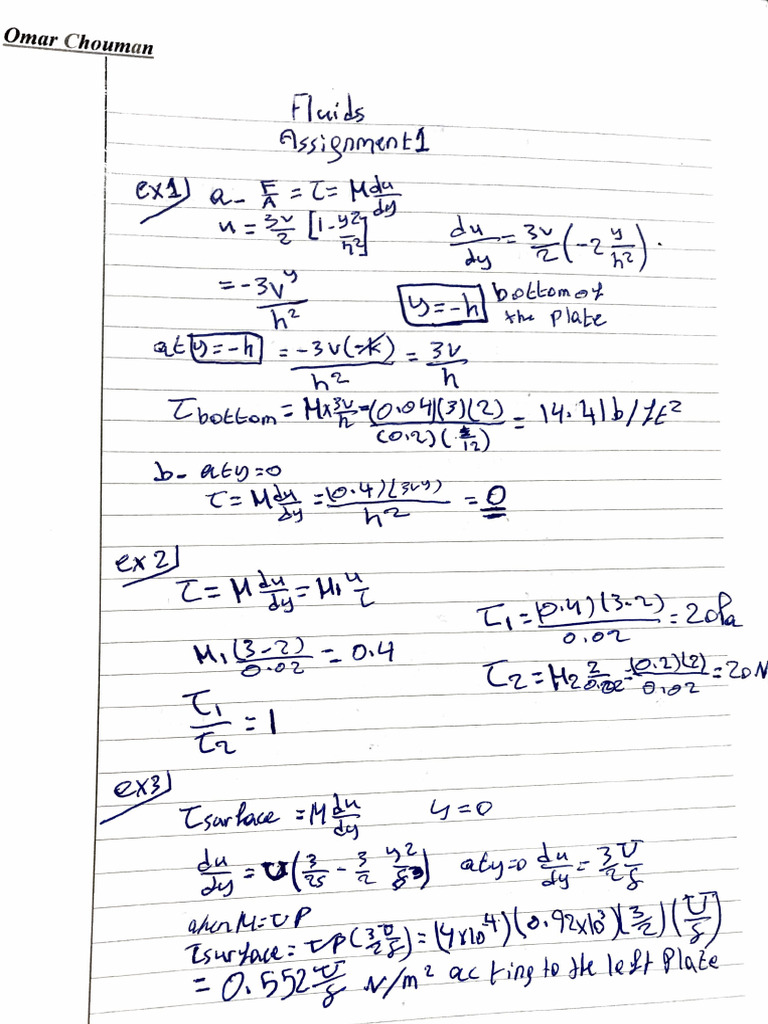 Omar Chouman
Fluids
Assignment1
ex1) a- F/A = τ = M du/dy
u = 3v/2 [1 - y2/h2]
du/dy = 3v/2 (-2 y/h2).
= -3vy/h2
y = -h bottom of the plate
at y = -h = -3v(-h)/h2 = 3v/h
τbottom = M × 3v/h = (0.04)(3)(2)/(0.2)(/12) = 14.4 lb/ft2
b- at y = 0
τ = M du/dy = (0.4)(3vy)/h2 = 0
ex2)
τ = M du/dy = M1 u/τ
τ1 = (0.4)(3-2)/0.02 = 20 Pa
M1 (3-2)/0.02 = 0.4
τ2 = M2 2/0.02 = (0.2)(2)/0.02 = 20N
τ1/τ2 = 1
ex3)
τsurface = M du/dy y = 0
du/dy = U(3/2δ - 3/2 y2/δ3) at y=0 du/dy = 3/2 U/δ
when M = υP
τsurface = υP(3/2 U/δ) = (4×10^4)(0.92×10^3)(3/2)(U/δ)
= 0.552 U/δ N/m2 acting to the left Plate